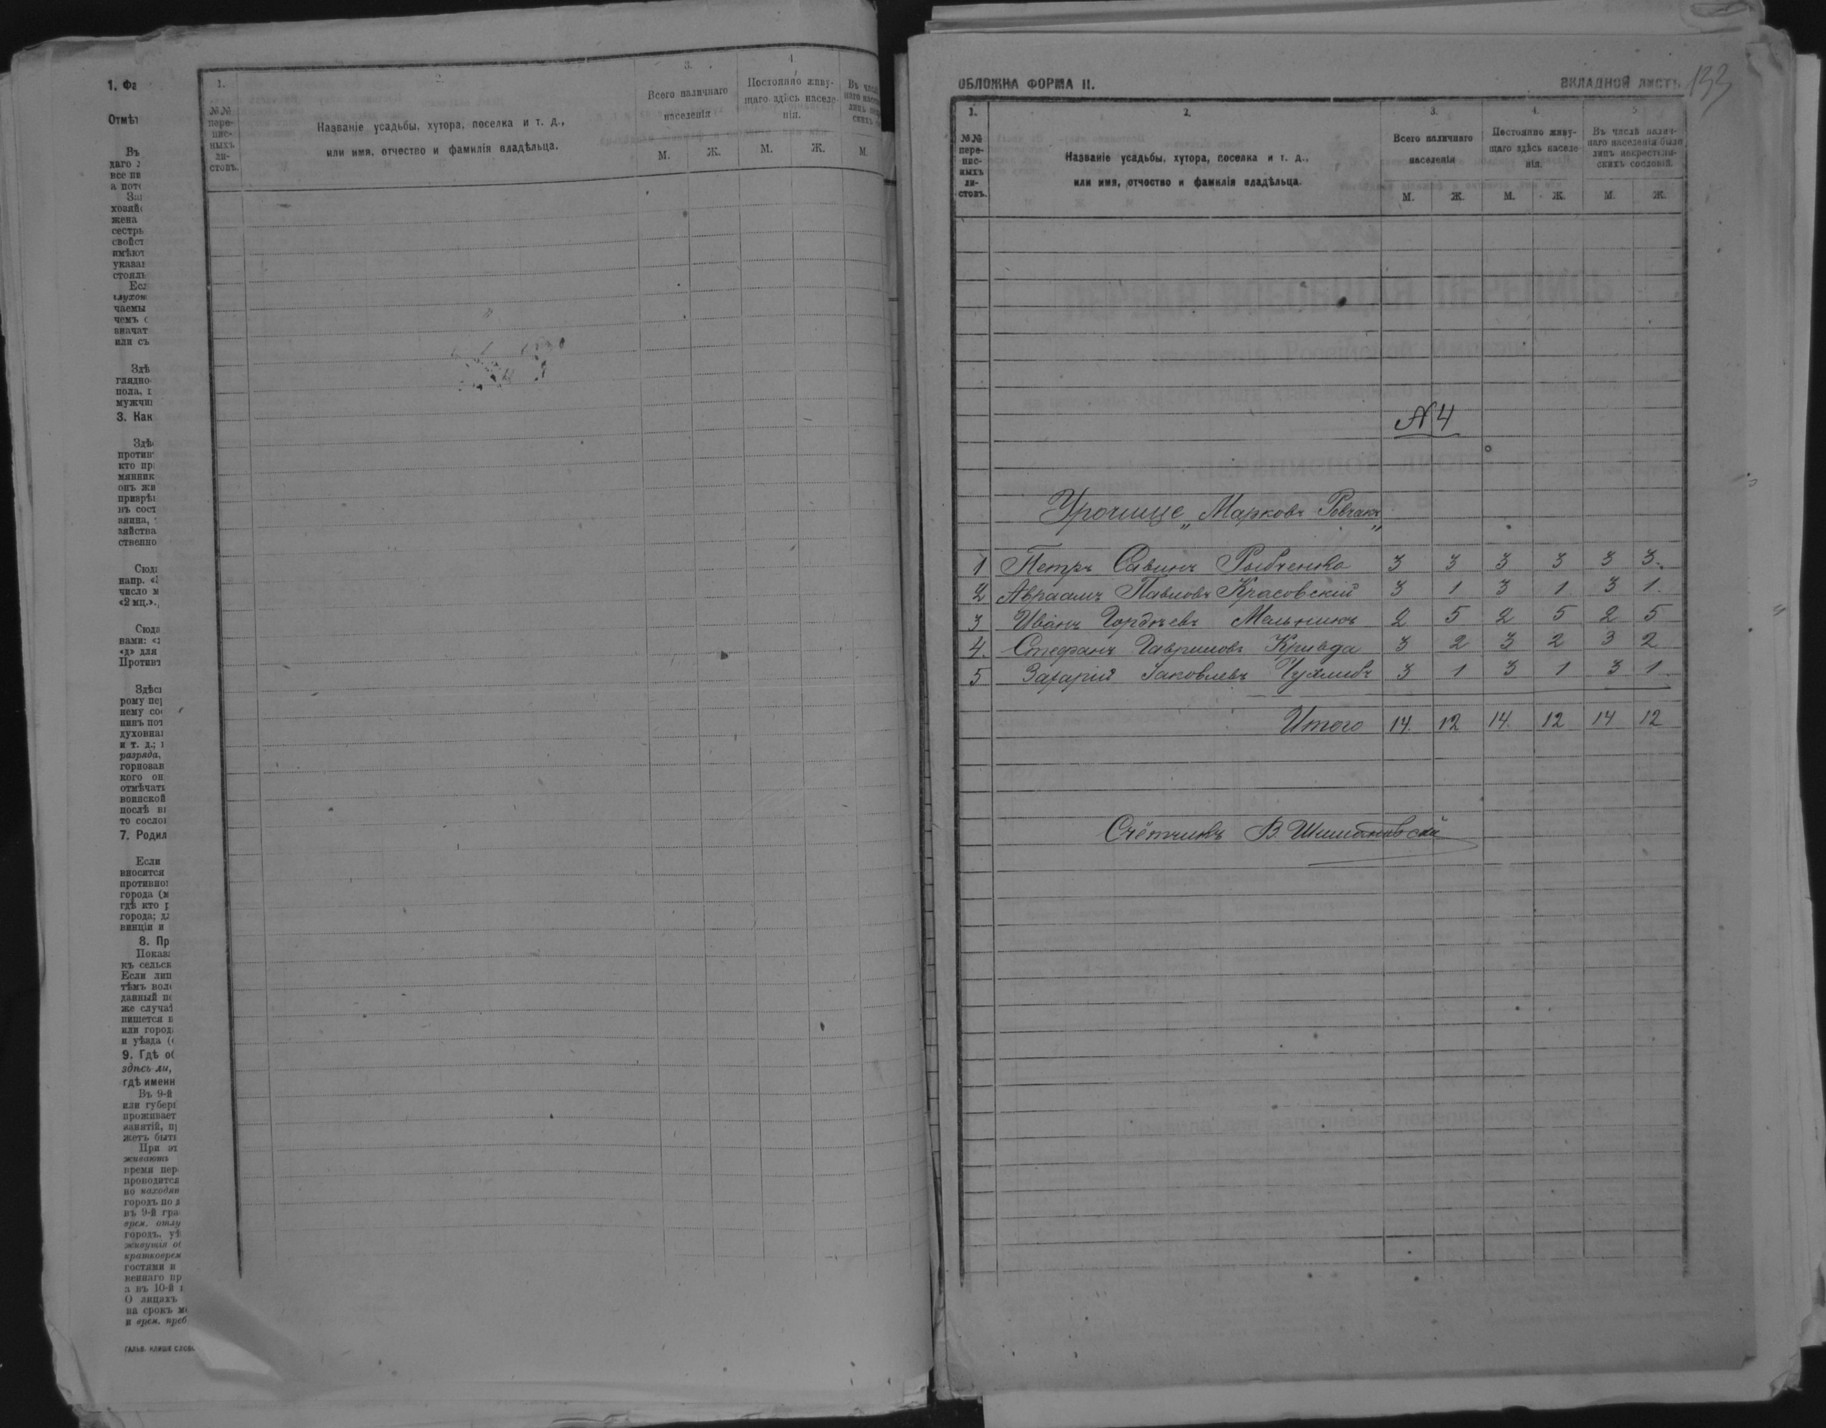 1. Фа
Отмѣт
Въ
даго
все
а
За
хозяй
жена
сестрь
свойст
имѣют
указан
стояль
Есл
слухом
чаемы
чемъ
значат
или съ
Здѣ
глядно-
пола.
мужчин
3. Как
Здѣ
против
кто пр
мянник
онъ жи
нъ сост
зяйства
ственно
Сюда
напр.
число м
«2 мц.».
Сюда
нами:
«д» для
Против
Здѣс
рому пе
нему со
духовна
и т. д.;
разряда,
кого он
отмѣчать
воинской
послѣ
то сосло
7. Родил
Если
вносится
противно
города
гдѣ кто
города;
винціи и
8. Пр
Показ
къ сельск
Если лиц
тѣмъ вол
данный
же случаѣ
пишется
или город
и уѣзда
9. Гдѣ об
здѣсь ли,
гдѣ именн
Въ 9-й
или губер
проживает
занятій,
жетъ быть
При эт
живають
время пер
проводится
но находя
городъ по
въ 9-й гра
врем. отлу
городъ, уѣ
живущія об
кратковрем
гостями и
веннаго пр
а въ 10-й
О лицахъ
на срокъ
и врем. преб
1. 2. 3. 4
№№ пере-пис-ныхъ ли-стовъ.
Названіе усадьбы, хутора, поселка и т. д.,
или имя, отчество и фамилія владѣльца.
Всего наличнаго населенія
Постоянно живу-щаго здѣсь населе-нія.
Въ числ
М. Ж. М. Ж. М.
ОБЛОЖКА ФОРМА II. ВКЛАДНОЙ ЛИСТЪ. 133
1. 2. 3. 4. 5
№№ пере-пис-ныхъ ли-стовъ.
Названіе усадьбы, хутора, поселка и т. д.,
или имя, отчество и фамилія владѣльца.
Всего наличнаго населенія
Постоянно живу-щаго здѣсь населе-нія.
Въ числѣ налич-наго населенія было лицъ некрестьян-скихъ сословій.
М. Ж. М. Ж. М. Ж.
№ 4
Урочище „Марковъ Ровчакъ"
1 Петръ Савинъ Рыбченко 3 3 3 3 3 3.
2 Авраамъ Павловъ Красовскій 3 1 3 1 3 1.
3 Иванъ Гордѣевъ Мельникъ 2 5 2 5 2 5
4. Стефанъ Гавриловъ Кривда 3 2 3 2 3 2
5 Захарій Іаковлевъ Чухлибъ 3 1 3 1 3 1
Итого 14. 12 14. 12 14 12
Счётчикъ В.